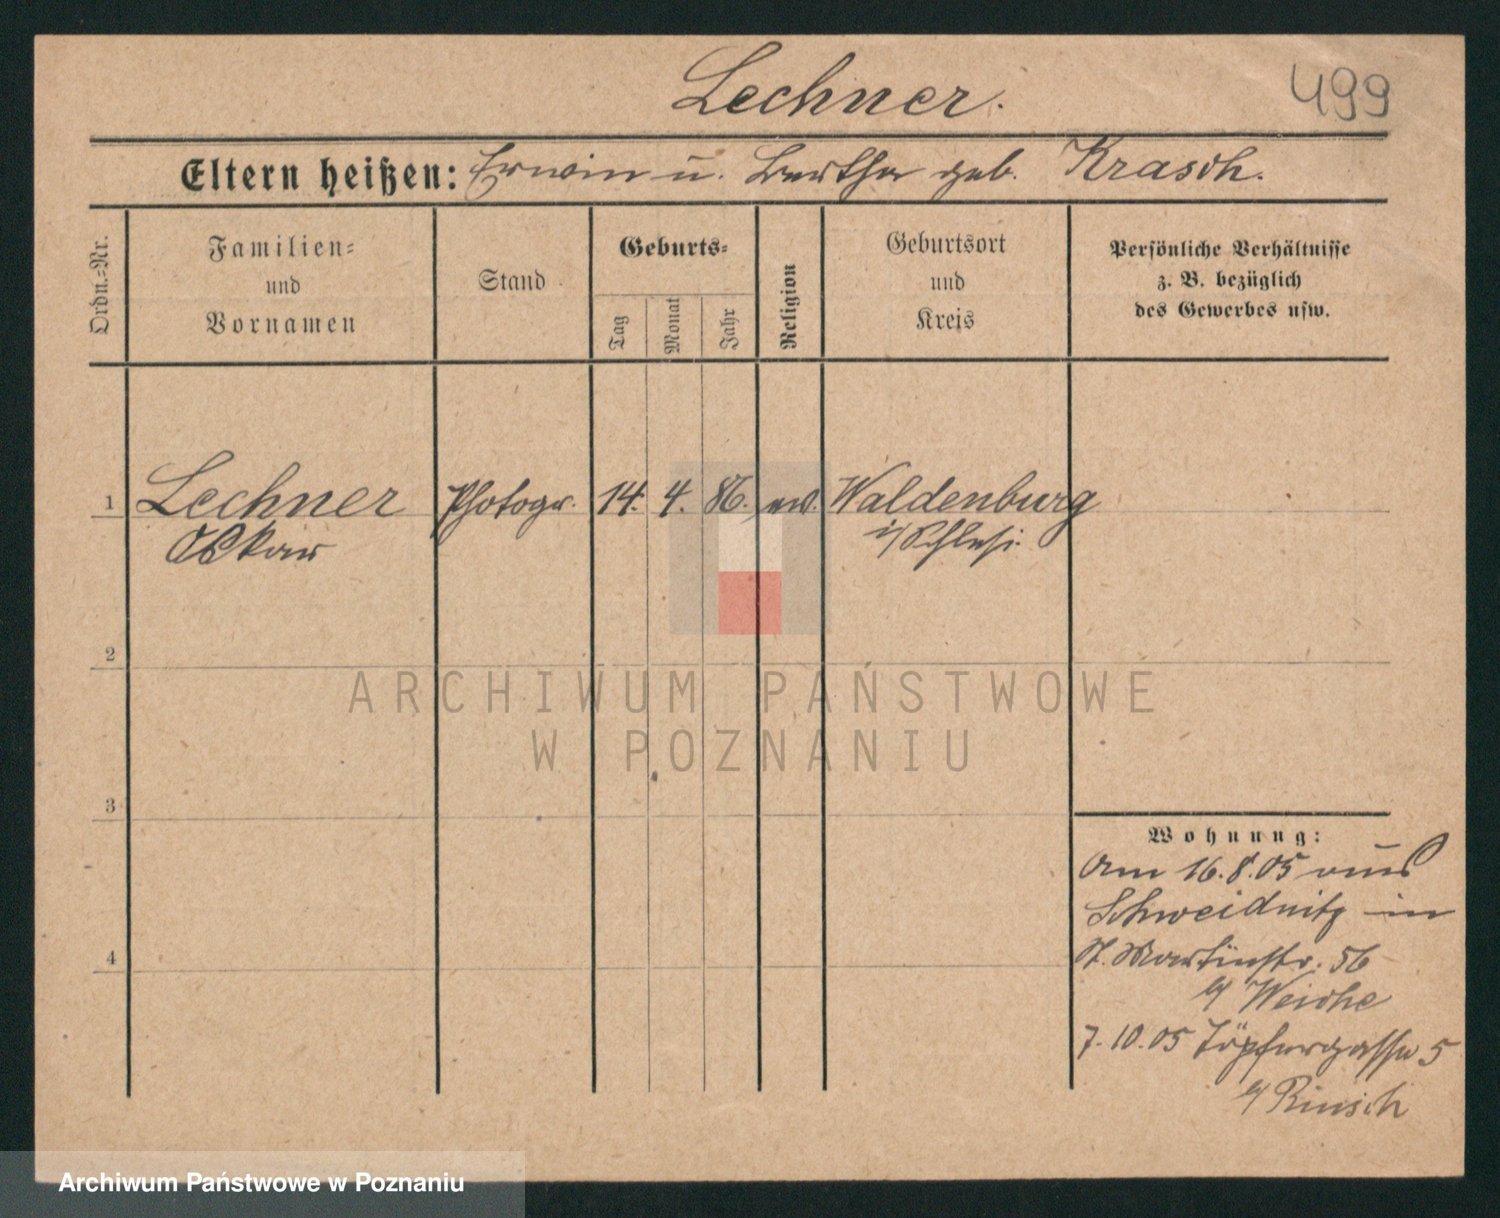 Lechner.
499
Eltern heißen: Erwin u. Bertha geb. Krasch.
Ordn.=Nr.
Familien=
und
Vornamen
Stand
Geburts=
Tag
Monat
Jahr
Religion
Geburtsort
und
Kreis
Persönliche Verhältnisse
z. B. bezüglich
des Gewerbes usw.
1 Lechner Photogr. 14. 4. 86. ev. Waldenburg
Oskar i/Schles.
2
ARCHIWUM PAŃSTWOWE
W POZNANIU
3
Wohnung:
Am 16.8.05 aus
Schweidnitz in
St. Martinstr. 56
b/ Weiche
4
7.10.05 Töpfergasse 5
b/
Archiwum Państwowe w Poznaniu